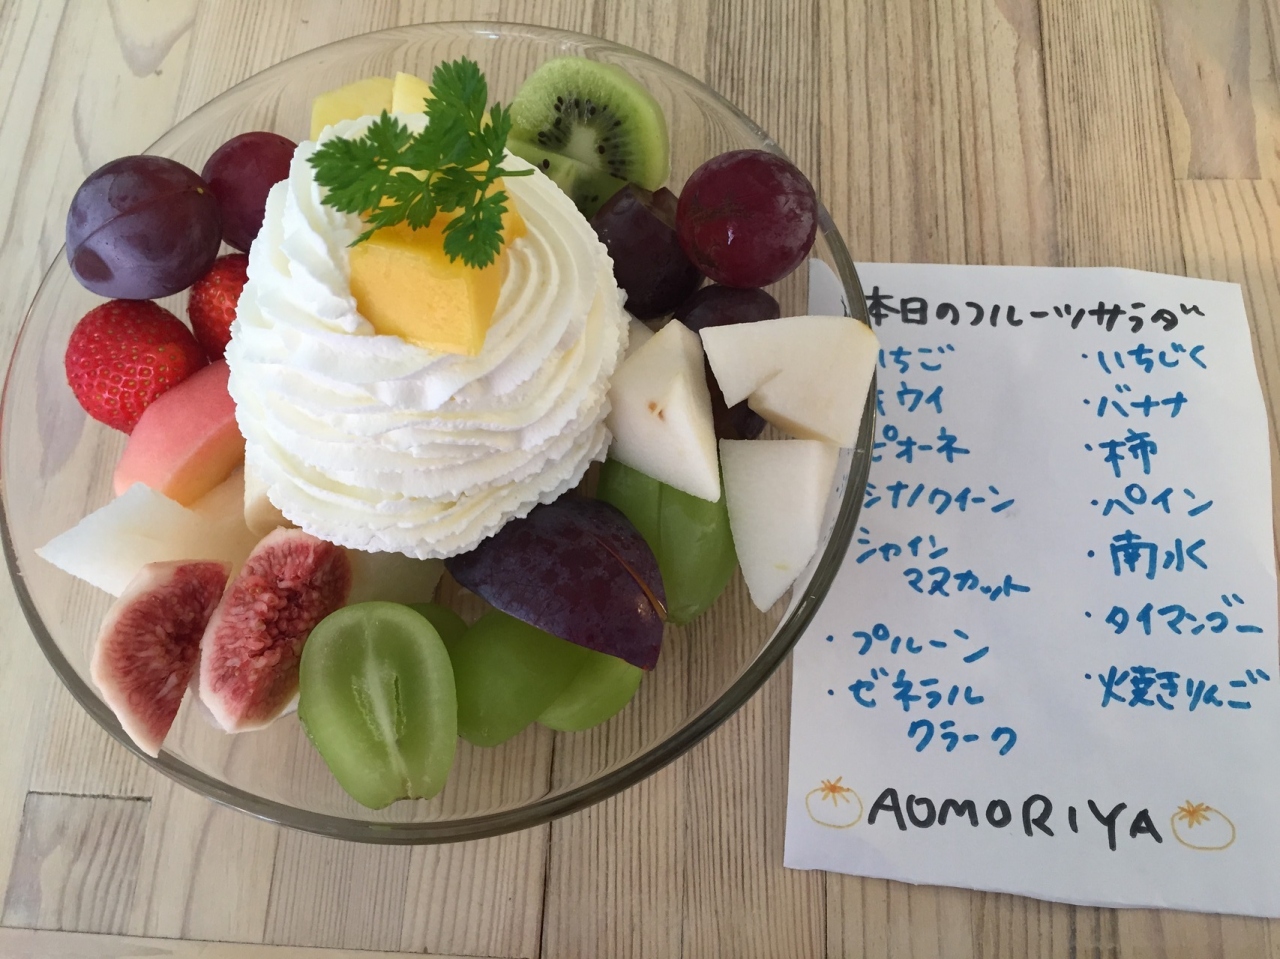 本日のフルーツサラダ
いちご
キウイ
ピオーネ
シナノクイーン
シャイン
マスカット
・プルーン
・ゼネラル
クラーク
・いちじく
・バナナ
・柿
・パイン
・南水
・タイマンゴー
・焼きりんご
AOMORIYA